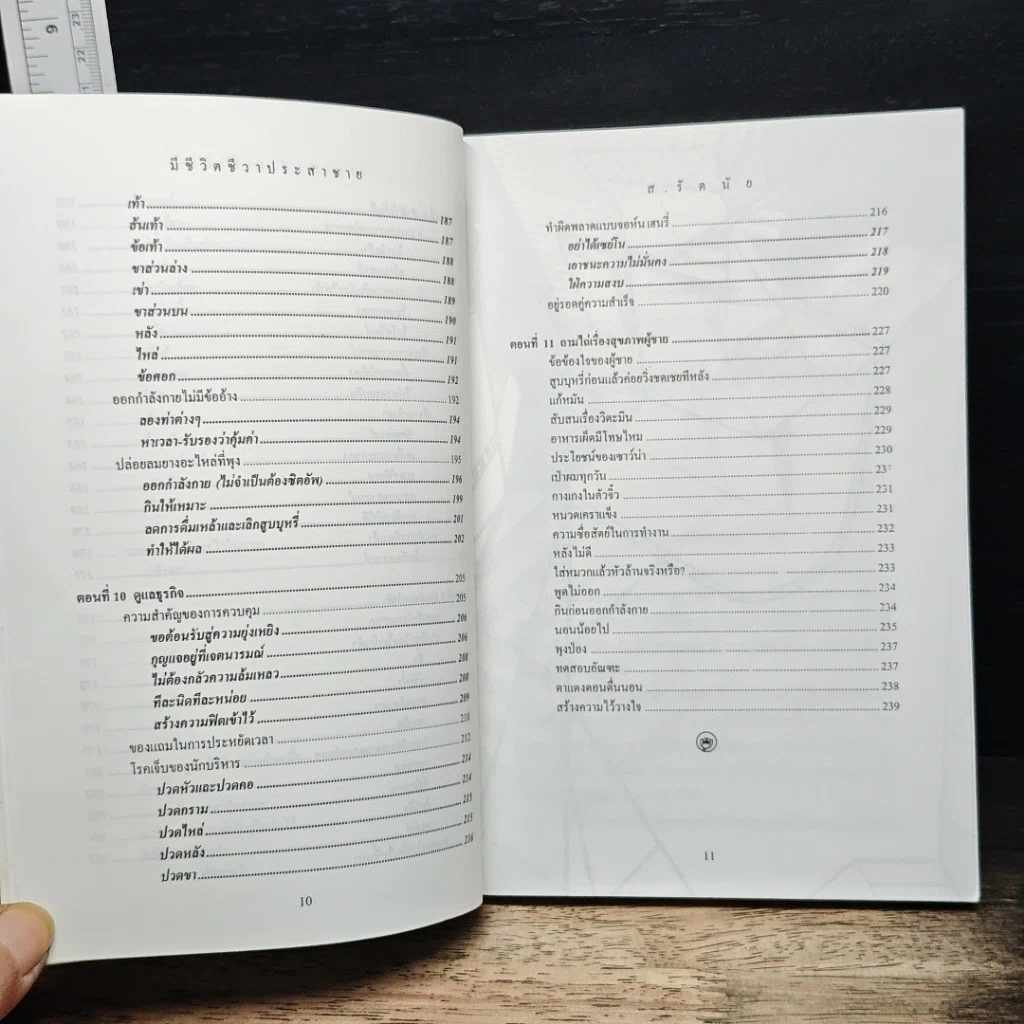 9
23
22
21
มีชีวิตชีวาประสาชาย
เท้า 187
ส้นเท้า 187
ข้อเท้า 188
ขาส่วนล่าง 188
เข่า 189
ขาส่วนบน 190
หลัง 191
ไหล่ 191
ข้อศอก 192
ออกกำลังกายไม่มีข้ออ้าง 192
ลองท่าต่างๆ 194
หาเวลา-รับรองว่าคุ้มค่า 194
ปล่อยลมยางอะไหล่ที่พุง 195
ออกกำลังกาย (ไม่จำเป็นต้องซิตอัพ) 196
กินให้เหมาะ 199
ลดการดื่มเหล้าและเลิกสูบบุหรี่ 201
ทำให้ได้ผล 202
ตอนที่ 10 ดูแลธุรกิจ 205
ความสำคัญของการควบคุม 205
ขอต้อนรับสู่ความยุ่งเหยิง 206
กุญแจอยู่ที่เจตนารมณ์ 206
ไม่ต้องกลัวความล้มเหลว 208
ทีละนิดทีละหน่อย 208
สร้างความฟิตเข้าไว้ 209
ของแถมในการประหยัดเวลา 210
โรคเจ็บของนักบริหาร 212
ปวดหัวและปวดคอ 214
ปวดกราม 214
ปวดไหล่ 215
ปวดหลัง 215
ปวดขา 216
10
ส.รัตนัย
ทำผิดพลาดแบบจอห์น เฮนรี่ 216
อย่าได้เซย์โน 217
เอาชนะความไม่มั่นคง 218
ใฝ่ความสงบ 219
อยู่รอดคู่ความสำเร็จ 220
ตอนที่ 11 ถามไถ่เรื่องสุขภาพผู้ชาย 227
ข้อข้องใจของผู้ชาย 227
สูบบุหรี่ก่อนแล้วค่อยวิ่งชดเชยทีหลัง 227
แก้หมัน 228
สับสนเรื่องวิตะมิน 229
อาหารเผ็ดมีโทษไหม 229
ประโยชน์ของเซาว์น่า 230
เป่าผมทุกวัน 231
กางเกงในตัวจิ๋ว 231
หนวดเคราแข็ง 231
ความซื่อสัตย์ในการทำงาน 232
หลังไม่ดี 233
ใส่หมวกแล้วหัวล้านจริงหรือ? 233
พูดไม่ออก 234
กินก่อนออกกำลังกาย 234
นอนน้อยไป 235
พุงป่อง 237
ทดสอบอัณฑะ 237
ตาแดงตอนตื่นนอน 238
สร้างความไว้วางใจ 239
11